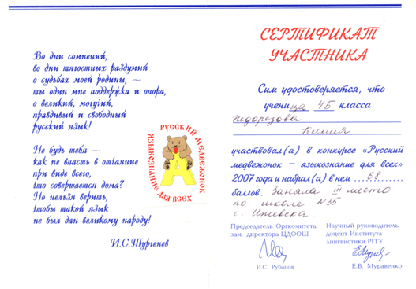 Во дни сомнений,
во дни тягостных раздумий
о судьбах моей родины, —
ты один мне поддержка и опора,
о великий, могучий,
правдивый и свободный
русский язык!
Не будь тебя —
как не впасть в отчаяние
при виде всего,
что совершается дома?
Но нельзя верить,
чтобы такой язык
не был дан великому народу!
И.С.Тургенев
РУССКИЙ МЕДВЕЖОНОК
ЯЗЫКОЗНАНИЕ ДЛЯ ВСЕХ
СЕРТИФИКАТ
УЧАСТНИКА
Сим удостоверяется, что
учени ца 4Б класса
участвовал(а) в конкурсе «Русский
медвежонок – языкознание для всех»
2007 года и набрал(а) в нем
баллов. Заняла III место
по школе № 35
г. Ижевска
Председатель Оргкомитета,
зам. директора ЦДООШ
Научный руководитель,
доцент Института
лингвистики РГГУ
Е.В. Муравенко